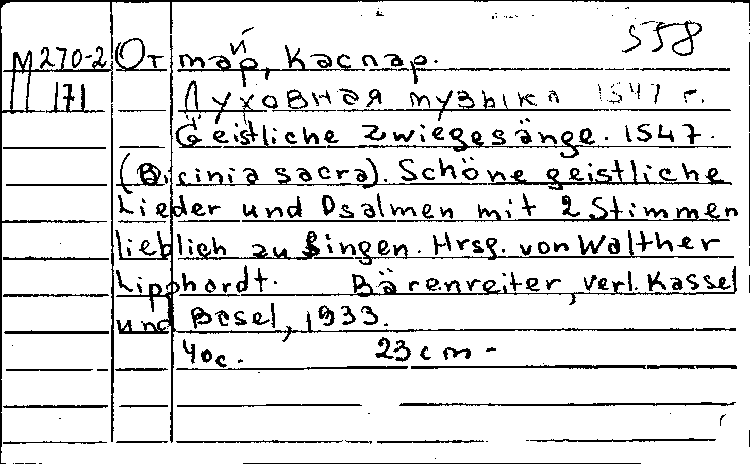 558
М270-2 Отmайр, Каспар.
171 Духовная mузыка 1547 г.
Geistliche Zwiegesänge. 1547.
(Bicinia sacra). Schöne geistliche
Lieder und Psalmen mit 2 Stimmen
lieblich zu singen. Hrsg. von Walther
Lipphardt. Bärenreiter, Verl. Kassel
und Basel, 1933.
40с. 23 cm -